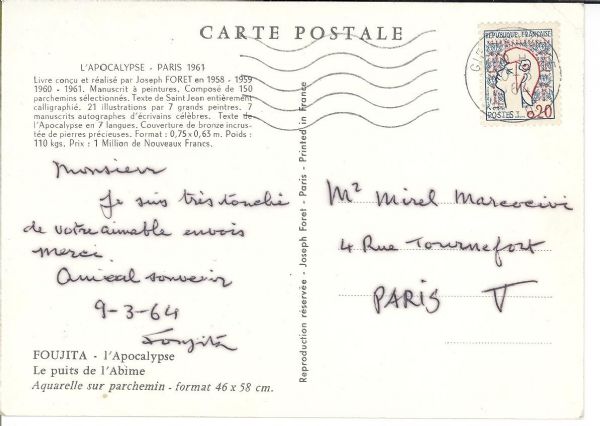 CARTE POSTALE
L'APOCALYPSE - PARIS 1961
Livre conçu et réalisé par Joseph FORET en 1958 - 1959
1960 - 1961. Manuscrit à peintures. Composé de 150
parchemins sélectionnés. Texte de Saint Jean entièrement
calligraphié. 21 illustrations par 7 grands peintres. 7
manuscrits autographes d'écrivains célèbres. Texte de
l'Apocalypse en 7 langues. Couverture de bronze incrus-
tée de pierres précieuses. Format : 0,75 x 0,63 m. Poids :
110 kgs. Prix : 1 Million de Nouveaux Francs.
Monsieur
Je suis très touché
de votre aimable envois
merci.
Amical souvenir
9-3-64
Foujita
FOUJITA - l'Apocalypse
Le puits de l'Abime
Aquarelle sur parchemin - format 46 x 58 cm.
Reproduction réservée - Joseph Foret - Paris - Printed in France
REPUBLIQUE FRANÇAISE
POSTES
0,20
Mr Mirel Marcocivi
4 Rue Tournefort
PARIS V